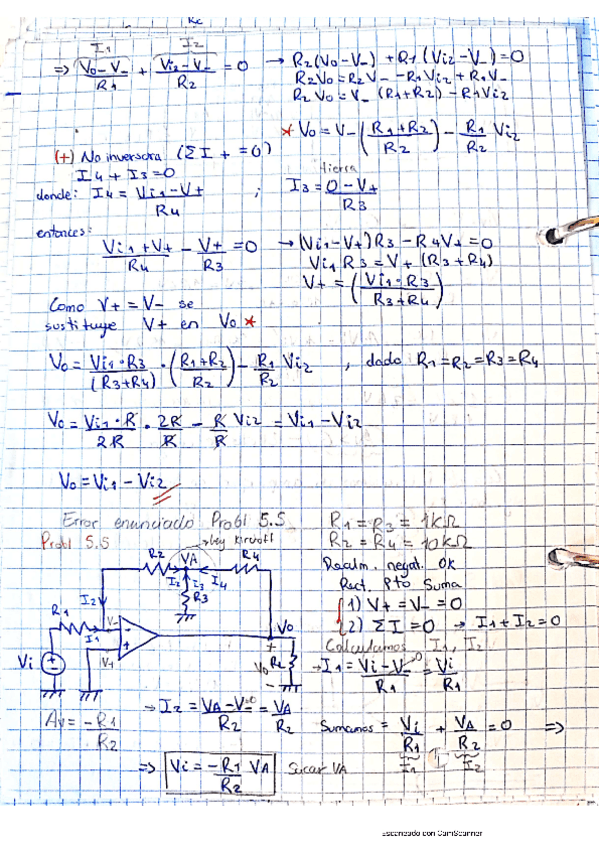 Rc
I1 I2
=> Vo-V-/R1 + Vi2-V-/R2 = 0 → R2(Vo-V-) + R1(Vi2-V-) = 0
R2Vo = R2V- - R1Vi2 + R1V-
R2Vo = V- (R1+R2) - R1Vi2
* Vo = V- (R1+R2/R2) - R1/R2 Vi2
(+) No inversora (ΣI+ = 0)
I4 + I3 = 0
Tierra
donde: I4 = Vi1-V+/R4 ; I3 = 0-V+/R3
entonces:
Vi1+V+/R4 - V+/R3 = 0 → (Vi1-V+)R3 - R4V+ = 0
Vi1 R3 = V+ (R3+R4)
V+ = (Vi1·R3/R3+R4)
Como V+ = V- se
sustituye V+ en Vo *
Vo = Vi1·R3/(R3+R4) · (R1+R2/R2) - R1/R2 Vi2 , dado R1=R2=R3=R4
Vo = Vi1·R/2R · 2R/R - R/R Vi2 = Vi1-Vi2
Vo = Vi1 - Vi2
Error enunciado Probl 5.5
R1 = R3 = 1kΩ
Probl 5.5
→ Ley Kirchoff
R2 = R4 = 10kΩ
R2 VA R4
Realm. negat. OK
I2 I3 I4
R3
Rect. Pto Suma
I2
1) V+ = V- = 0
R1 V-
2) ΣI = 0 → I1 + I2 = 0
I1 - + Vo
Calculamos I1, I2
Vi + - V+
+ Vo RL -
→ I1 = Vi-V-/R1 = Vi/R1
0
Av = -R1/R2
→ I2 = VA-V-/R2 = VA/R2
Sumamos = Vi/R1 + VA/R2 = 0 =>
I1 I2
=> Vi = -R1/R2 VA Sacar VA
Escaneado con CamScanner